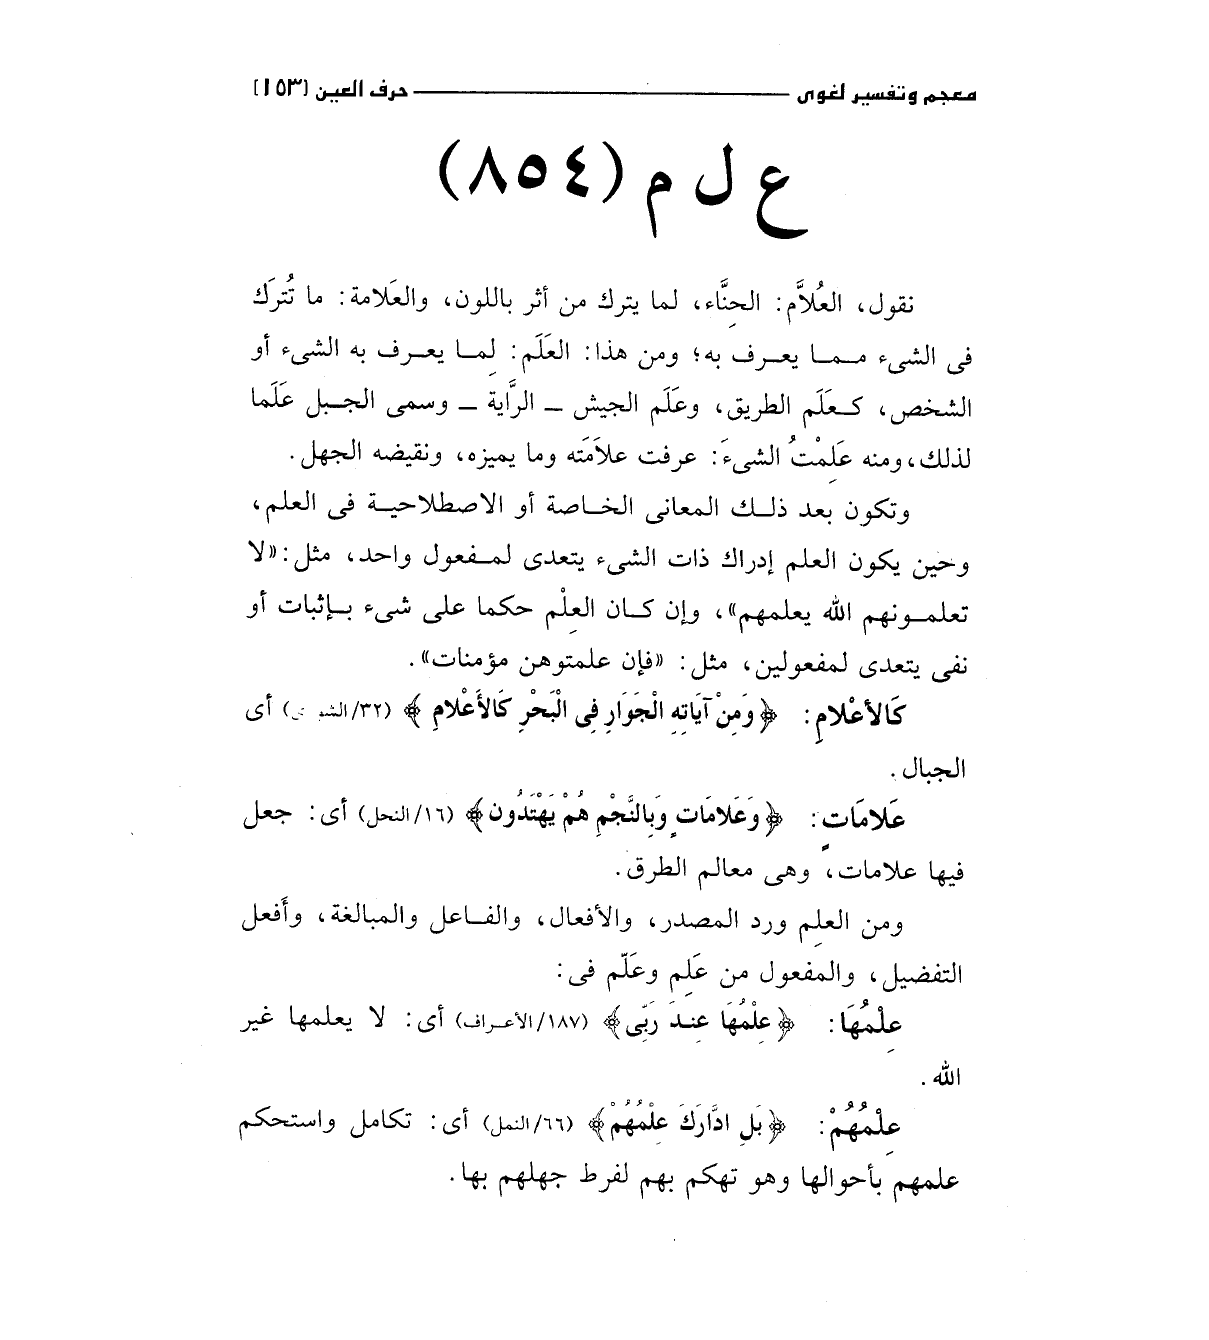 معجم وتفسير لغوى حرف العين [١٥٣]
ع ل م (٨٥٤)
نقول، العُلاَّم: الحِنَّاء، لما يترك من أثر باللون، والعَلامة: ما تُترَك
فى الشىء مما يعرف به؛ ومن هذا: العَلَم: لِما يعرف به الشىء أو
الشخص، كعَلَم الطريق، وعَلَم الجيش ــ الرَّاية ــ وسمى الجبل عَلَما
لذلك، ومنه عَلِمْتُ الشىءَ: عرفت علاَمَته وما يميزه، ونقيضه الجهل.
وتكون بعد ذلك المعانى الخاصة أو الاصطلاحية فى العلم،
وحين يكون العلم إدراك ذات الشىء يتعدى لمفعول واحد، مثل: «لا
تعلمونهم الله يعلمهم»، وإن كان العِلْم حكما على شىء بإثبات أو
نفى يتعدى لمفعولين، مثل: «فإن علمتوهن مؤمنات».
كَالأَعْلامِ: ﴿وَمِنْ آيَاتِهِ الْجَوَارِ فِى الْبَحْرِ كَالأَعْلامِ﴾ (٣٢/ ) أى
الجبال.
عَلامَاتٍ: ﴿وَعَلامَاتٍ وَبِالنَّجْمِ هُمْ يَهْتَدُون﴾ (١٦/النحل) أى: جعل
فيها علامات، وهى معالم الطرق.
ومن العلِم ورد المصدر، والأفعال، والفاعل والمبالغة، وأَفعل
التفضيل، والمفعول من عَلِم وعَلّم فى:
عِلْمُهَا: ﴿عِلْمُهَا عِندَ رَبِّى﴾ (١٨٧/الأعراف) أى: لا يعلمها غير
الله.
عِلْمُهُمْ: ﴿بَلِ ادَّارَكَ عِلْمُهُمْ﴾ (٦٦/النمل) أى: تكامل واستحكم
علمهم بأحوالها وهو تهكم بهم لفرط جهلهم بها.